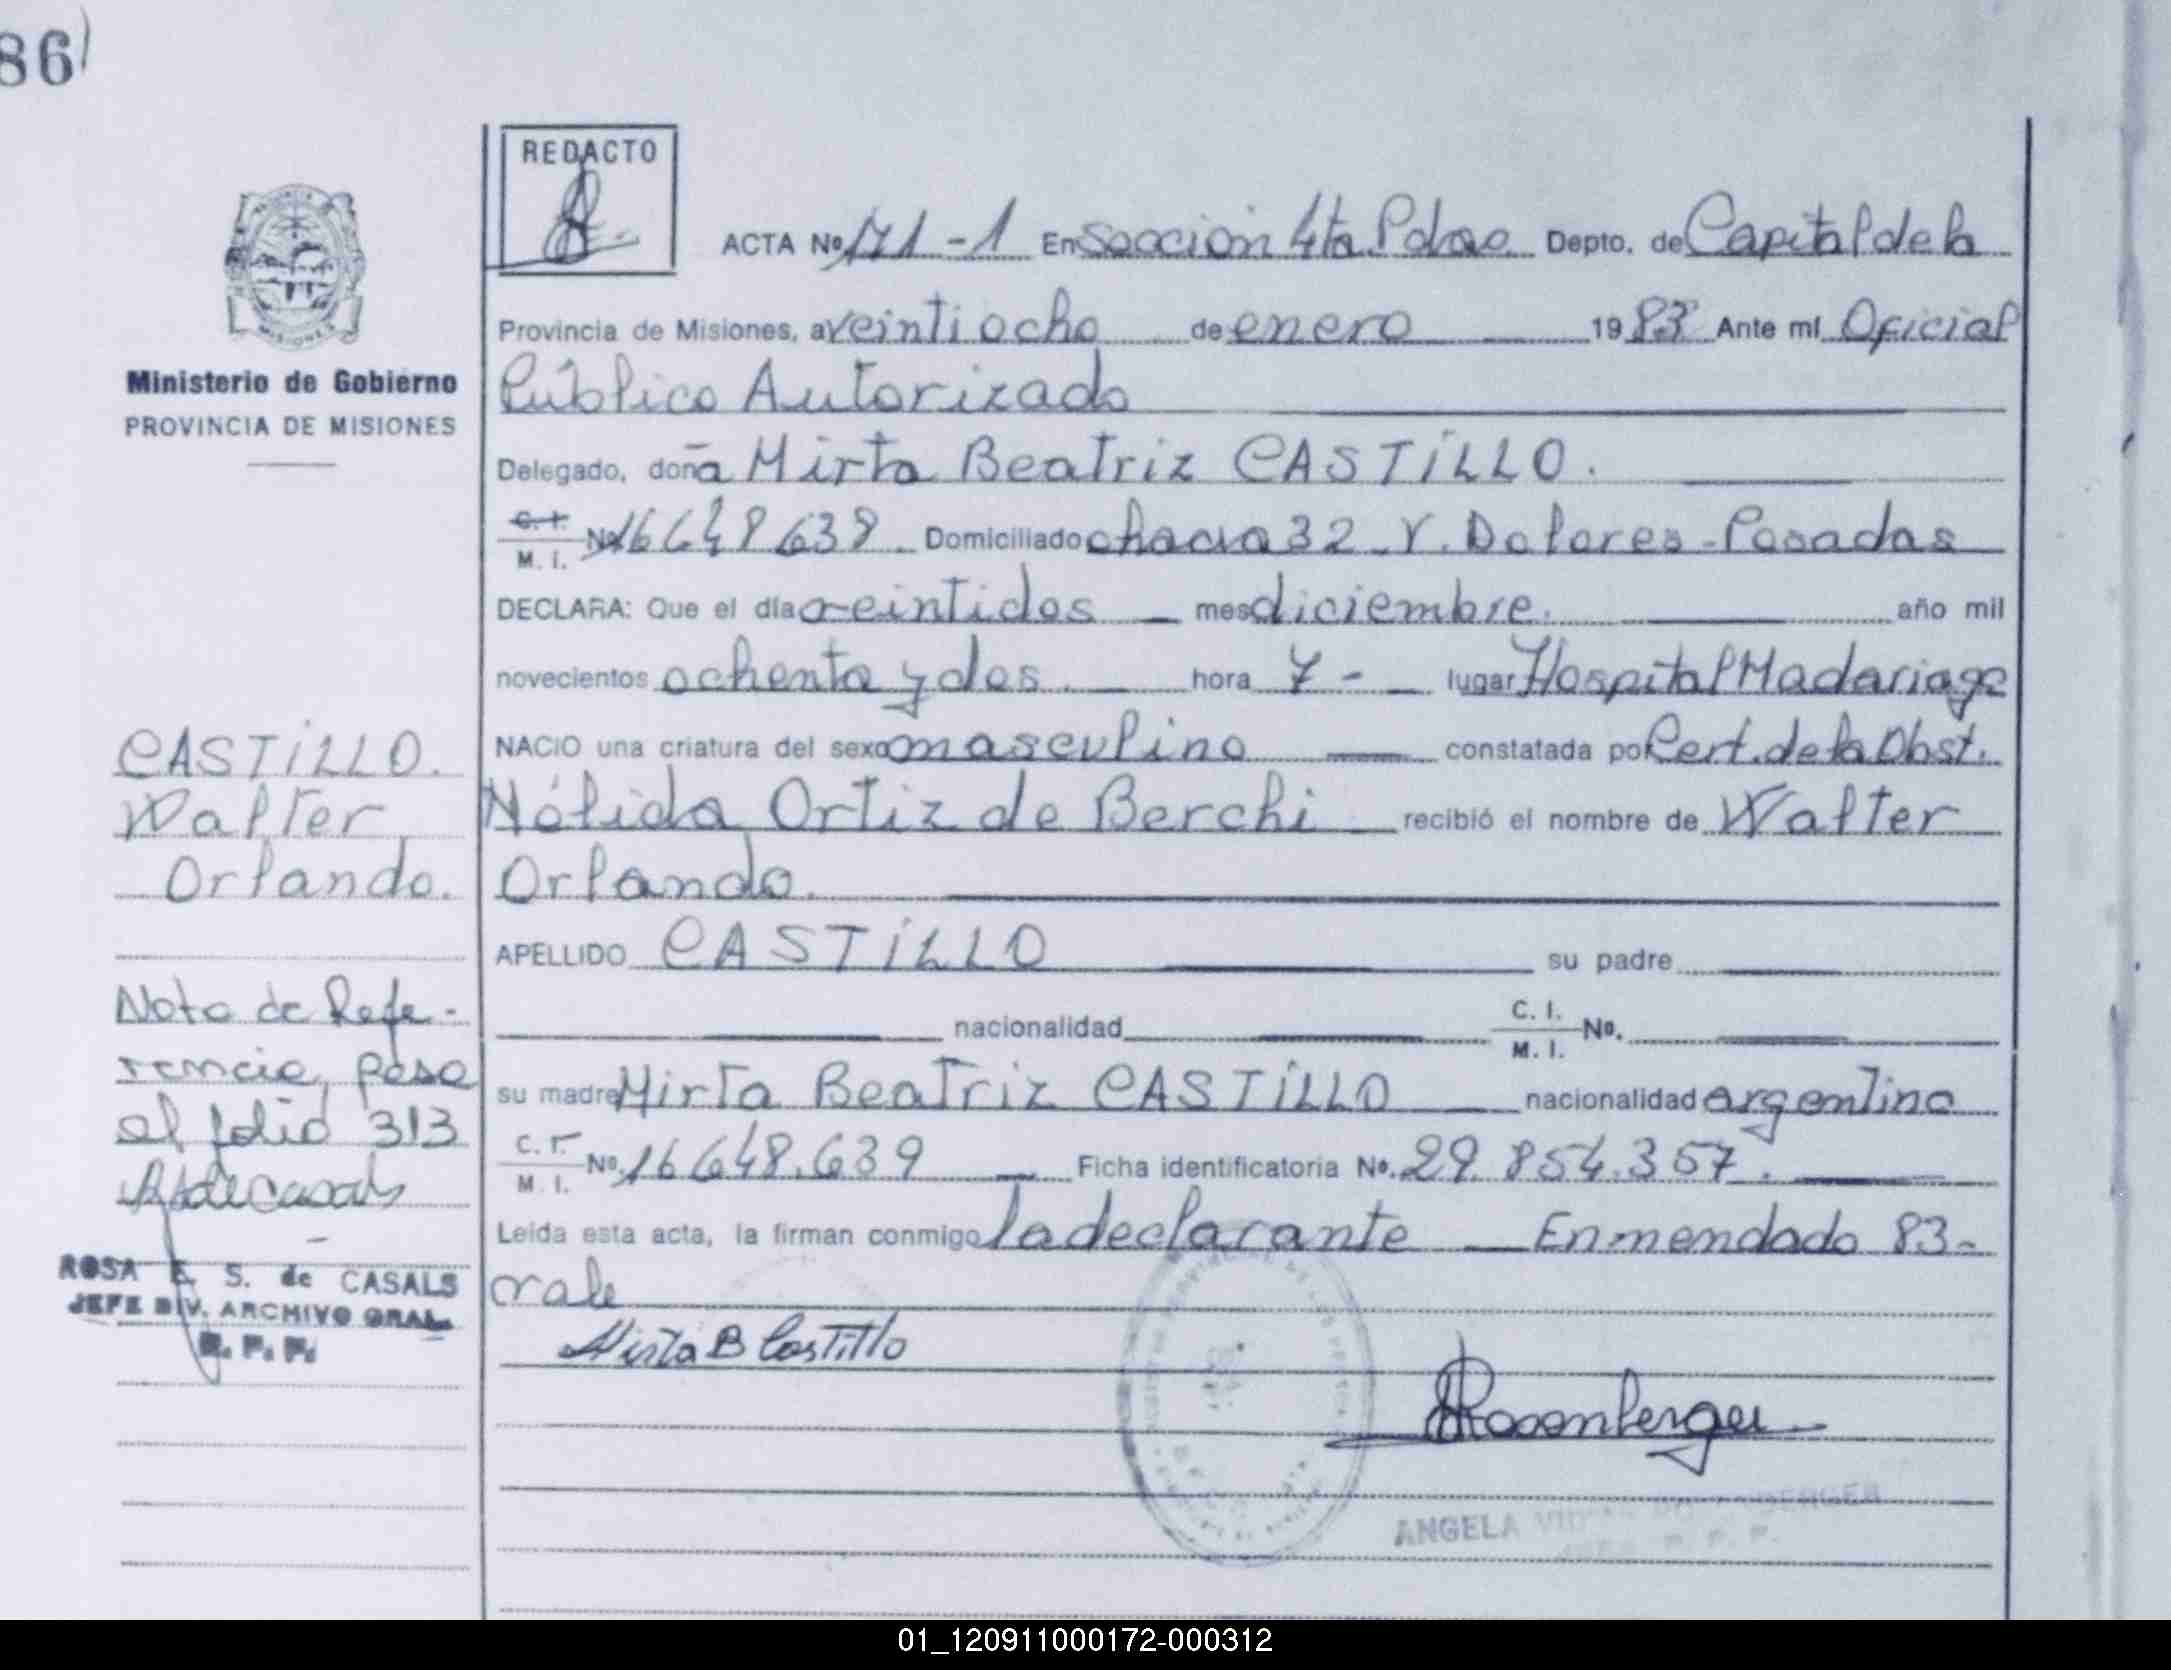 86
REDACTO
ACTA Nº 171-1 En Sección 4ta Pdas. Depto. de Capital de la
Provincia de Misiones, a veintiocho de enero 1983 Ante mí Oficial
Público Autorizado
Ministerio de Gobierno
PROVINCIA DE MISIONES
Delegado, doña Mirta Beatriz CASTiLLO.
C. I.
M. I. Nº 16648639 Domiciliado chacra 32 V. Dolores - Posadas
DECLARA: Que el día veintidos mes diciembre. año mil
novecientos ochenta y dos. hora 7 - lugar Hospital Madariaga
NACIO una criatura del sexo masculino constatada por Cert. de la Obst.
Nélida Ortiz de Berchi recibió el nombre de Walter
Orlando.
APELLIDO CASTiLLO su padre
nacionalidad C. I.
M. I. Nº.
su madre Mirta Beatriz CASTiLLO nacionalidad argentina
C. I.
M. I. Nº. 16648.639 Ficha identificatoria Nº. 29.854.357.
Leída esta acta, la firman conmigo la declarante Enmendado 83-
vale
Mirta B Castillo
Rosenberger
ANGELA
CASTiLLO.
Walter
Orlando.
Nota de Refe-
rencia, pasa
al folio 313
ROSA E. S. de CASALS
JEFE DIV. ARCHIVO GRAL.
R. P. P.
01_120911000172-000312